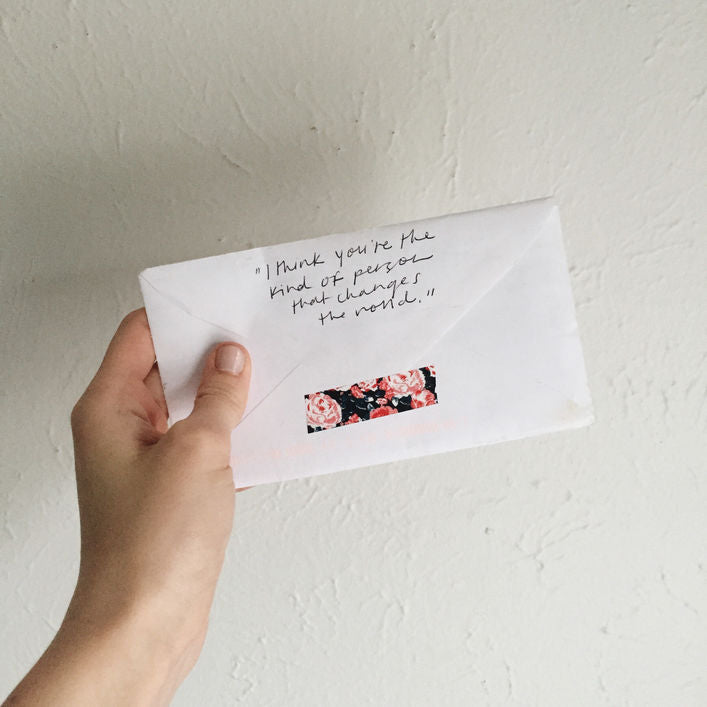 "I think you're the
kind of person
that changes
the world."